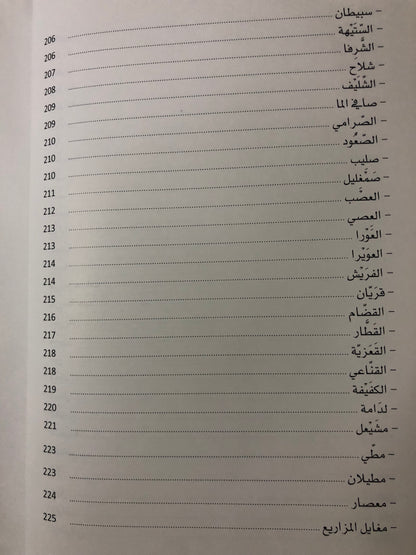 – سبيطان ........ 206
– السّتَيْهة ........ 206
– الشَّرفا ........ 207
– شلاَح ........ 208
– الشّلَيْف ........ 209
– صافي الما ........ 209
– الصّرامي ........ 210
– الصّعُود ........ 210
– صليب ........ 210
– صَمَّغليل ........ 211
– العضَّب ........ 212
– العصي ........ 213
– العَوْرا ........ 213
– العوَيْرا ........ 214
– الفرَيْش ........ 214
– قريَّان ........ 215
– القضَّام ........ 216
– القَطَّار ........ 217
– القَعَزيّة ........ 218
– القنّاعي ........ 218
– الكفَيْفة ........ 219
– لدَامة ........ 220
– مشَيْعل ........ 221
– مطّي ........ 223
– مطيلان ........ 223
– معصار ........ 224
– مغايل المزاريع ........ 225